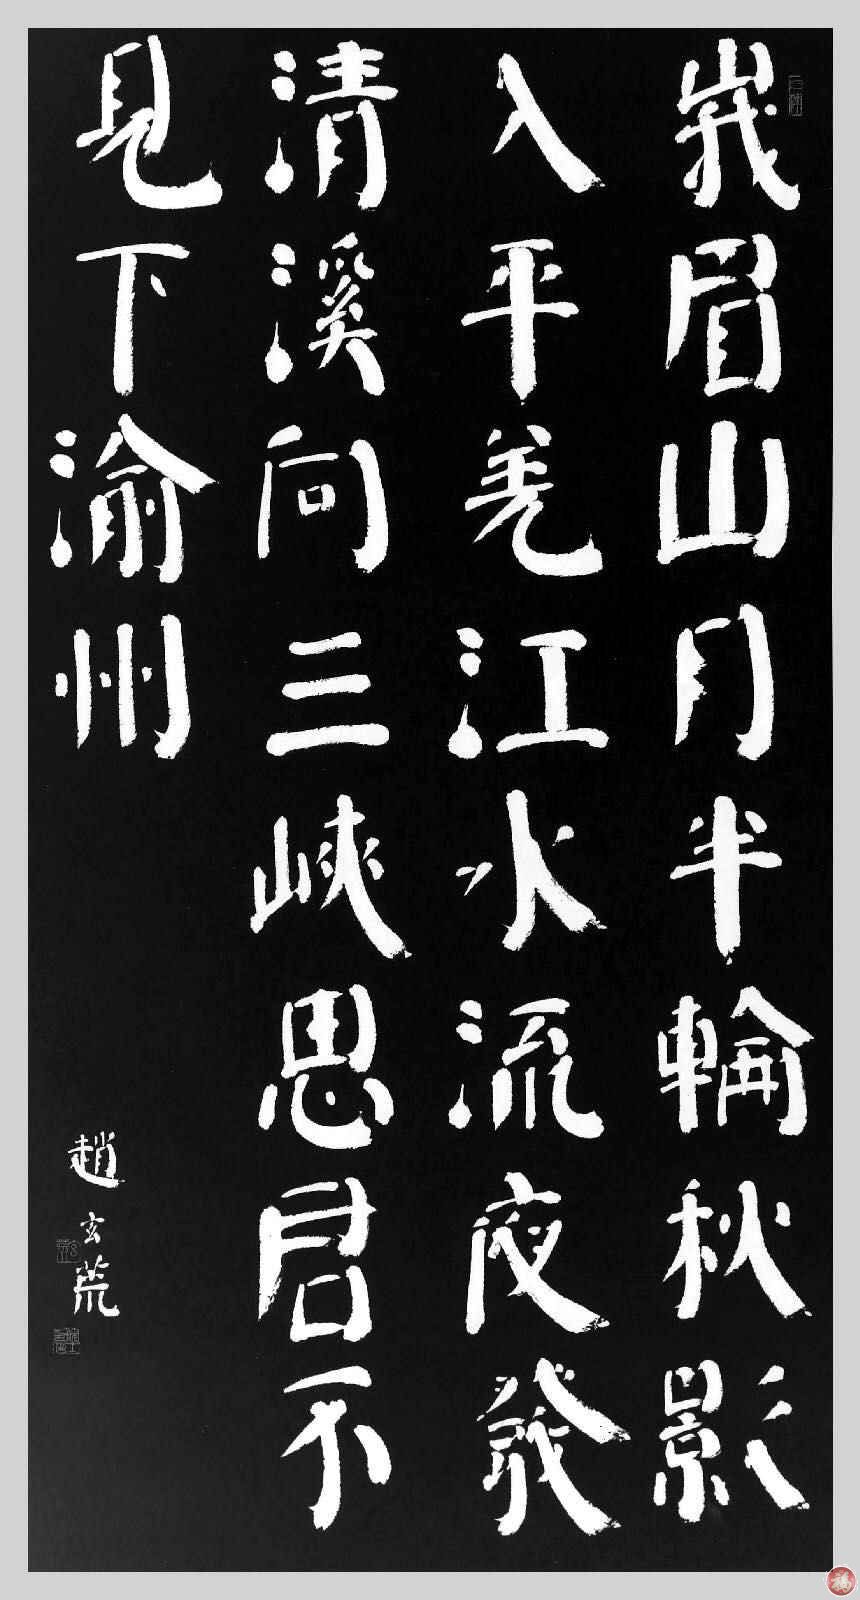 峩眉山月半輪秋影
入平羌江水流夜發
清溪向三峽思君不
見下渝州
趙玄荒
福